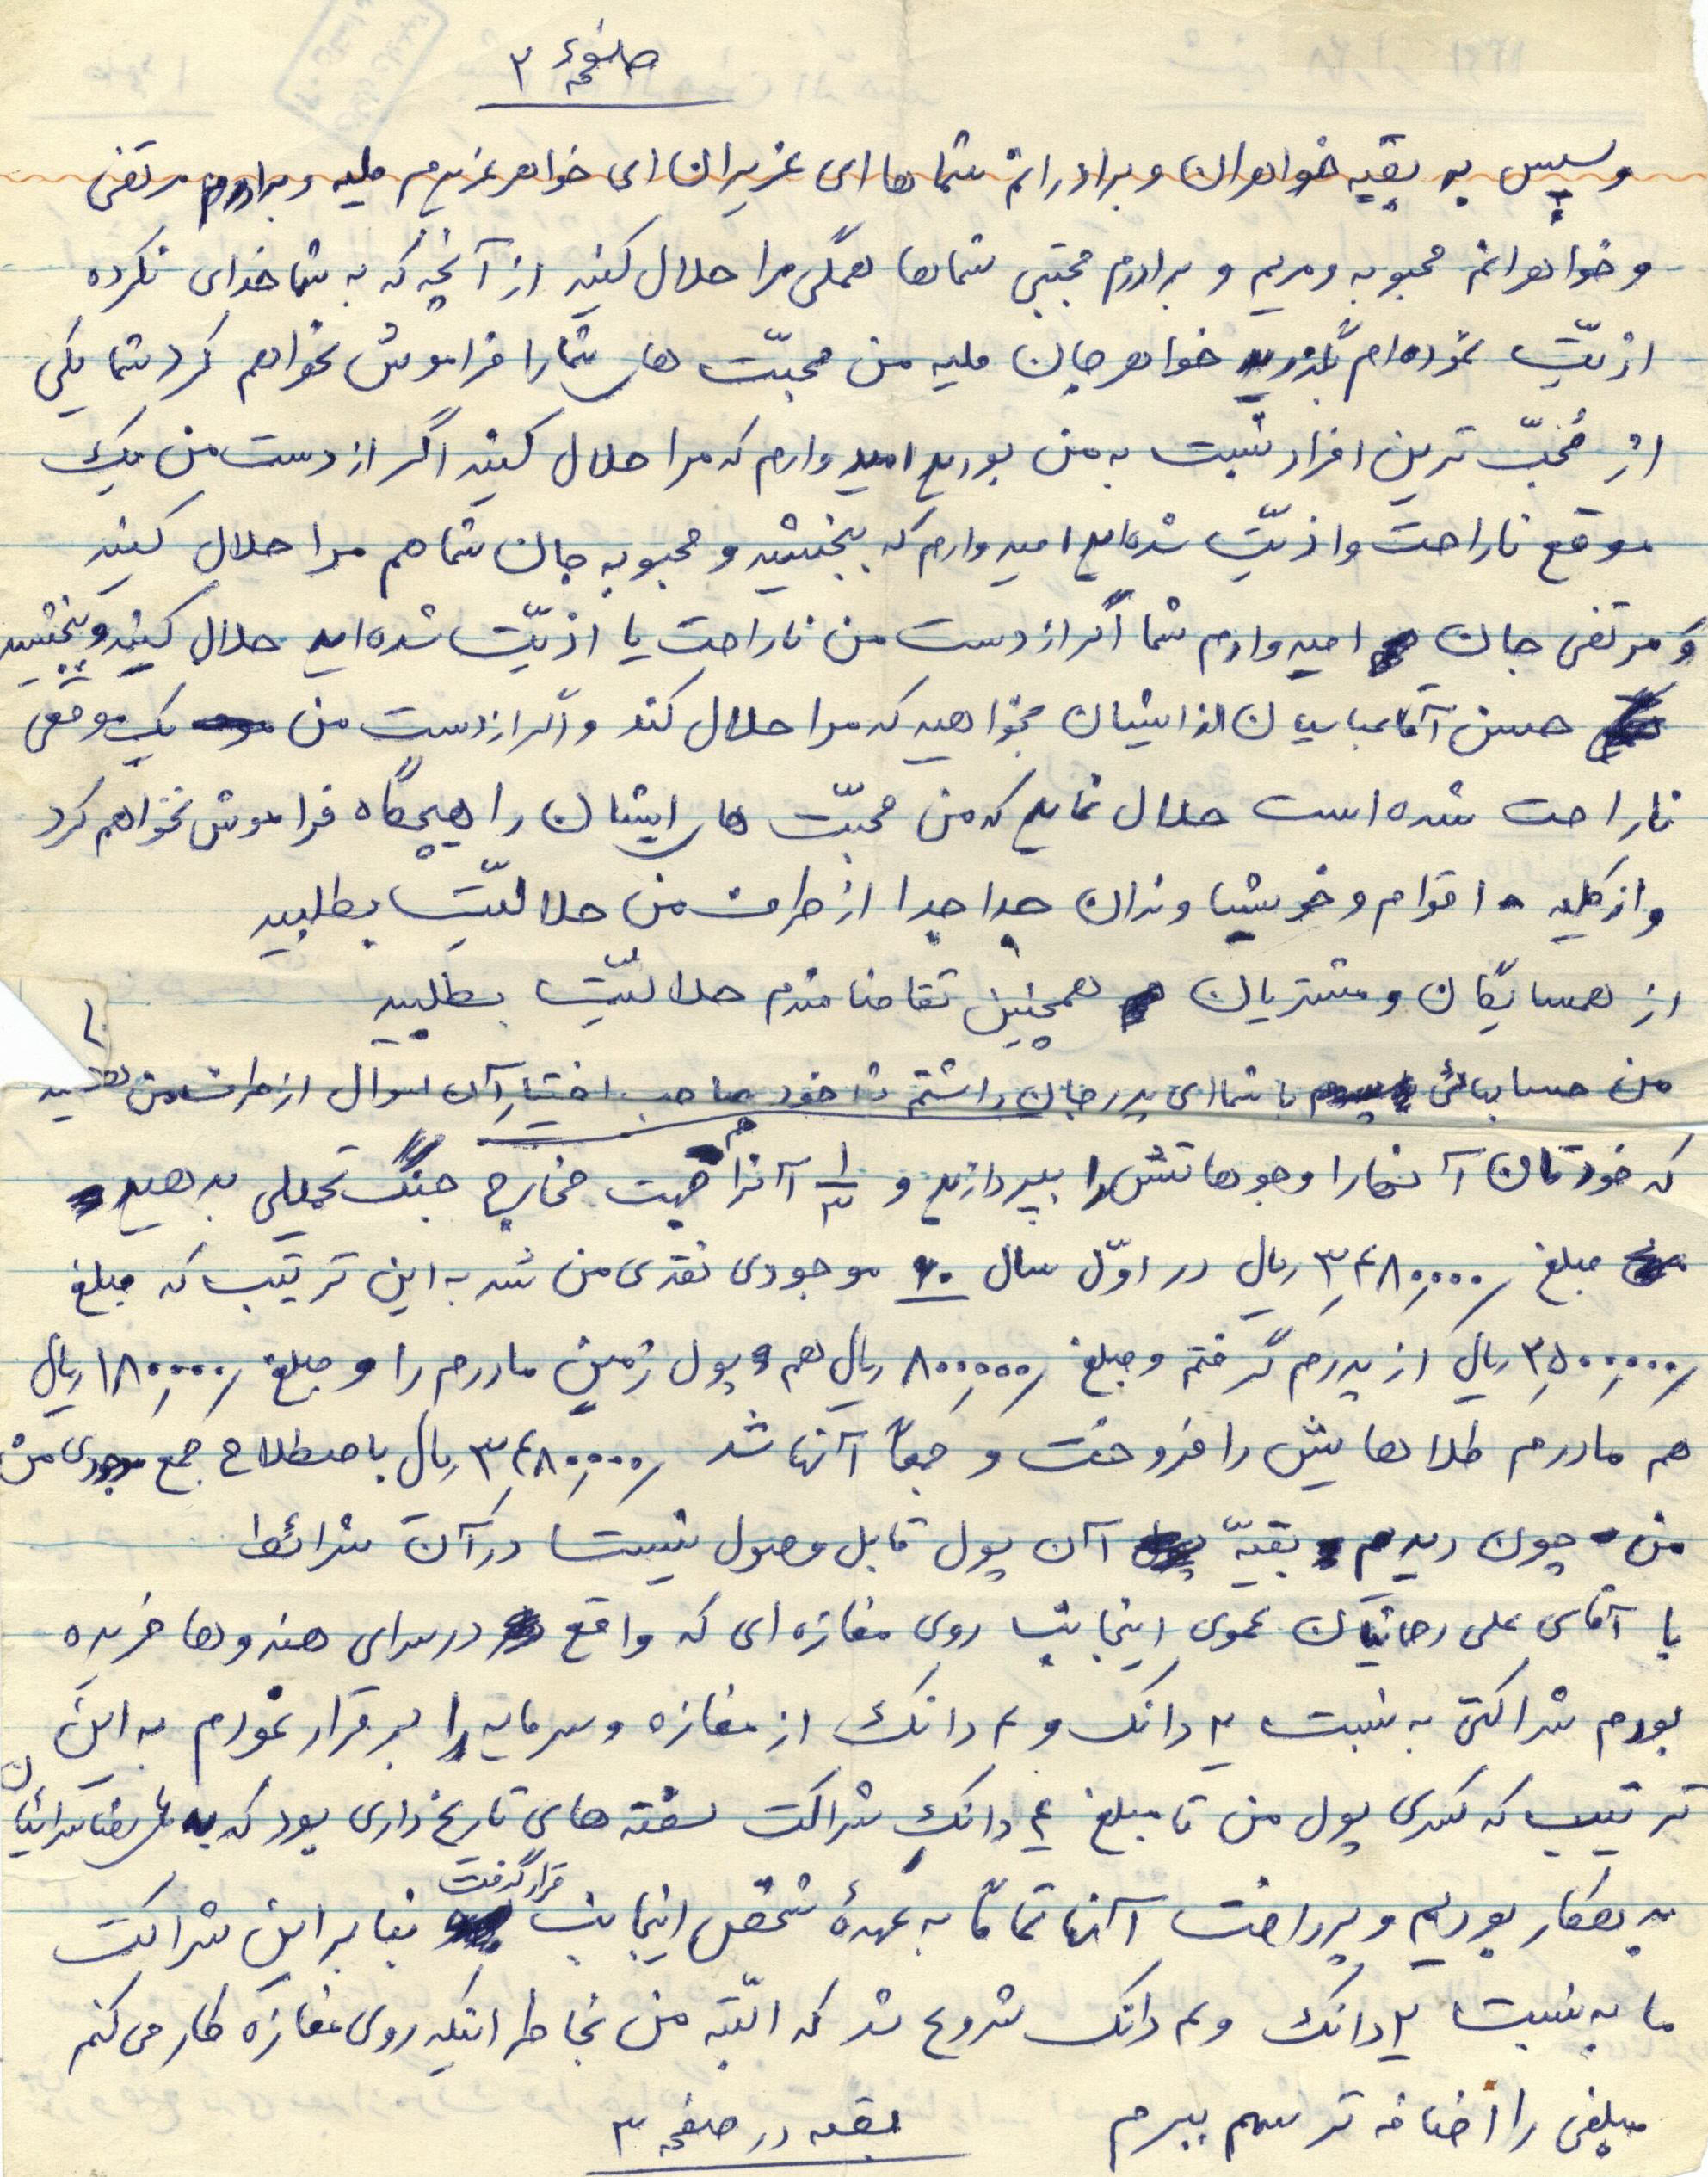 صفحهٔ ۲
وسپس به بقیه خواهران و برادرانم شماها ای عزیزان ای خواهر عزیزم ملیه و برادرم مرتضی
و خواهرانم محبوبه ومریم و برادرم مجتبی شماها همگی مرا حلال کنید از آنچه که به شما خدای نکرده
اذیّت نموده‌ام بگذرید خواهر جان ملیه من محبّت های شما را فراموش نخواهم کرد شما یکی
از مُحبّ ترین افراد نسبت به من بودید امید وارم که مرا حلال کنید اگر از دست من یک
موقع ناراحت و اذیّت شده‌اید امید وارم که ببخشید و محبوبه جان شما هم مرا حلال کنید
وَ مرتضی جان امید وارم شما اگر از دست من ناراحت یا اذیّت شده‌اید حلال کنید و ببخشید
حسن آقا عباسیان از ایشان بخواهید که مرا حلال کند و اگر از دست من یک موقعی
ناراحت شده است حلال نماید که من محبّت های ایشان را هیچگاه فراموش نخواهم کرد
و از کلیه اقوام و خویشاوندان جدا جدا از طرف من حلالیّت بطلبید
از همسایگان و مشتریان همچنین تقاضامندم حلالیّت بطلبید
من حسابهائی با شما ای پدر جان داشتم که خود صاحب اختیار آن اموال از طرف من
که خودتان آنها را وجوهاتش را بپردازید و ۱/۳ آنرا هم جهت مخارج جنگ تحمیلی بدهید
مبلغ ۳٬۴۸۰٬۰۰۰ ریال در اوّل سال ۶۰ موجودی نقدی من شد به این ترتیب که مبلغ
۲٬۵۰۰٬۰۰۰ ریال از پدرم گرفتم و مبلغ ۸۰۰٬۰۰۰ ریال هم پول زمین مادرم را و مبلغ ۱۸۰٬۰۰۰ ریال
هم مادرم طلاهایش را فروخت و جمعاً آنها شد ۳٬۴۸۰٬۰۰۰ ریال باصطلاح جمع موجودی من
من چون دیدم بقیّه آن پول قابل وصول نیست در آن شرائط
با آقای علی رحمانیان عموی اینجانب روی مغازه ای که واقع در سرای هندوها خریده
بودم شراکتی به نسبت ۲ دانگ و ۴ دانگ از مغازه و سرمایه را برقرار نمودم به این
ترتیب که کسری پول من تا مبلغ ۴ دانگ شراکت سفته های تاریخ داری بود که به
بدهکار بودیم و پرداخت آنها تماماً به عهدهٔ شخص اینجانب قرار گرفت بنا بر این شراکت
ما به نسبت ۲ دانگ و ۴ دانگ شروع شد که البّته من بخاطر اینکه روی مغازه کار می کنم
مبلغی را اضافه تر سهم ببرم
بقیه در صفحه ۳